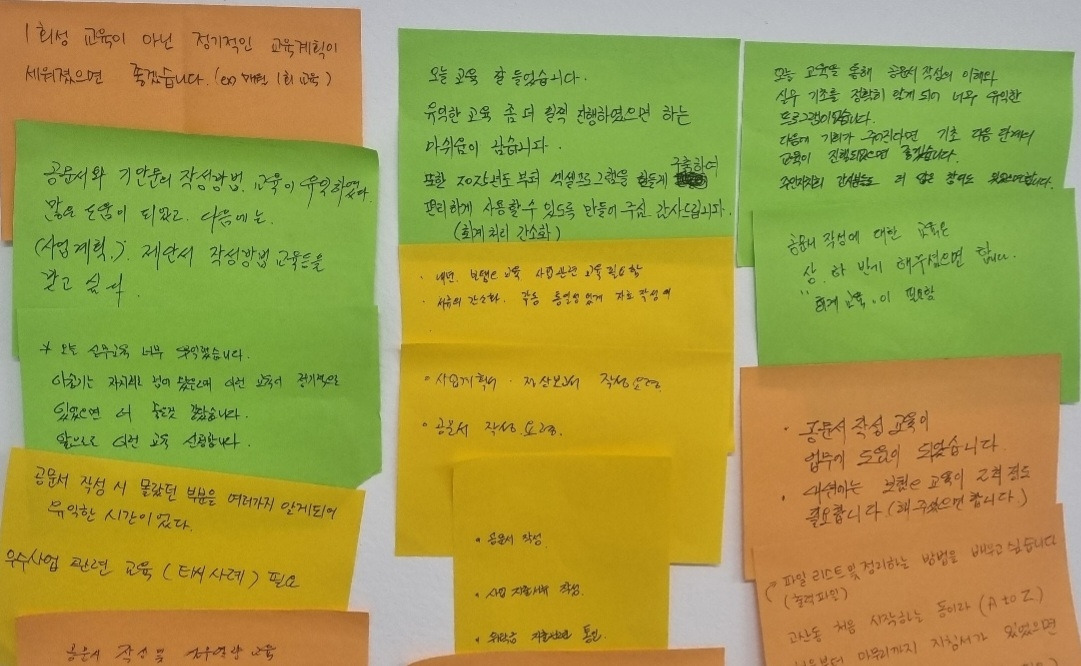 1회성 교육이 아닌 정기적인 교육계획이
세워졌으면 좋겠습니다. (ex) 매년 1회 교육)
공문서와 기안문의 작성방법 교육이 유익하였다.
많은 도움이 되었고. 다음에는.
(사업계획.) 제안서 작성방법 교육등을
받고 싶다.
* 오늘 실무교육 너무 유익했습니다.
이런 교육이 정기적으로
있었으면 더 좋을것 같습니다.
앞으로 이런 교육
공문서 작성 시 몰랐던 부분을 여러가지 알게되어
유익한 시간이었다.
우수사업 관련 교육 (타시 사례) 필요
공문서 작성 및 교육
오늘 교육 잘 들었습니다.
유익한 교육 좀 더 일찍 진행하였으면 하는
아쉬움이 남습니다.
또한 2025년도 부터 엑셀프로그램을 힘들게 구축하여
편리하게 사용할 수 있도록 만들어 주심 감사드립니다.
(회계처리 간소화)
· 내년. 보탬e 교육 사업관련 교육 필요함
· 서류의 간소화. 각동 통일성있게 자료 작성
• 사업계획서 · 정산보고서 작성요령
• 공문서 작성 요령.
• 공문서 작성.
• 사업 작성.
오늘 교육을 통해 공문서 작성의 이해와
실무 기초를 정확히 알게 되어 너무 유익한
프로그램이었습니다.
다음에 기회가 주어진다면 기초 다음 단계의
교육이 진행되었으면 좋겠습니다.
주민자치회 간사분들도 더 많은 참여도
공문서 작성에 대한 교육은
상. 하 반기 해주셨으면 합니다.
"회계 교육"이 필요함
· 공문서 작성 교육이
업무에 도움이 되었습니다.
· 내년에는 보탬e 교육이 2회 정도
필요합니다 (해 주셨으면 합니다.)
파일 리스트 및 정리하는 방법을 배우고 싶습니다
(출력파일)
고산동 처음 시작하는 동이라 (A to Z)
처음부터 마무리까지 지침서가 있었으면